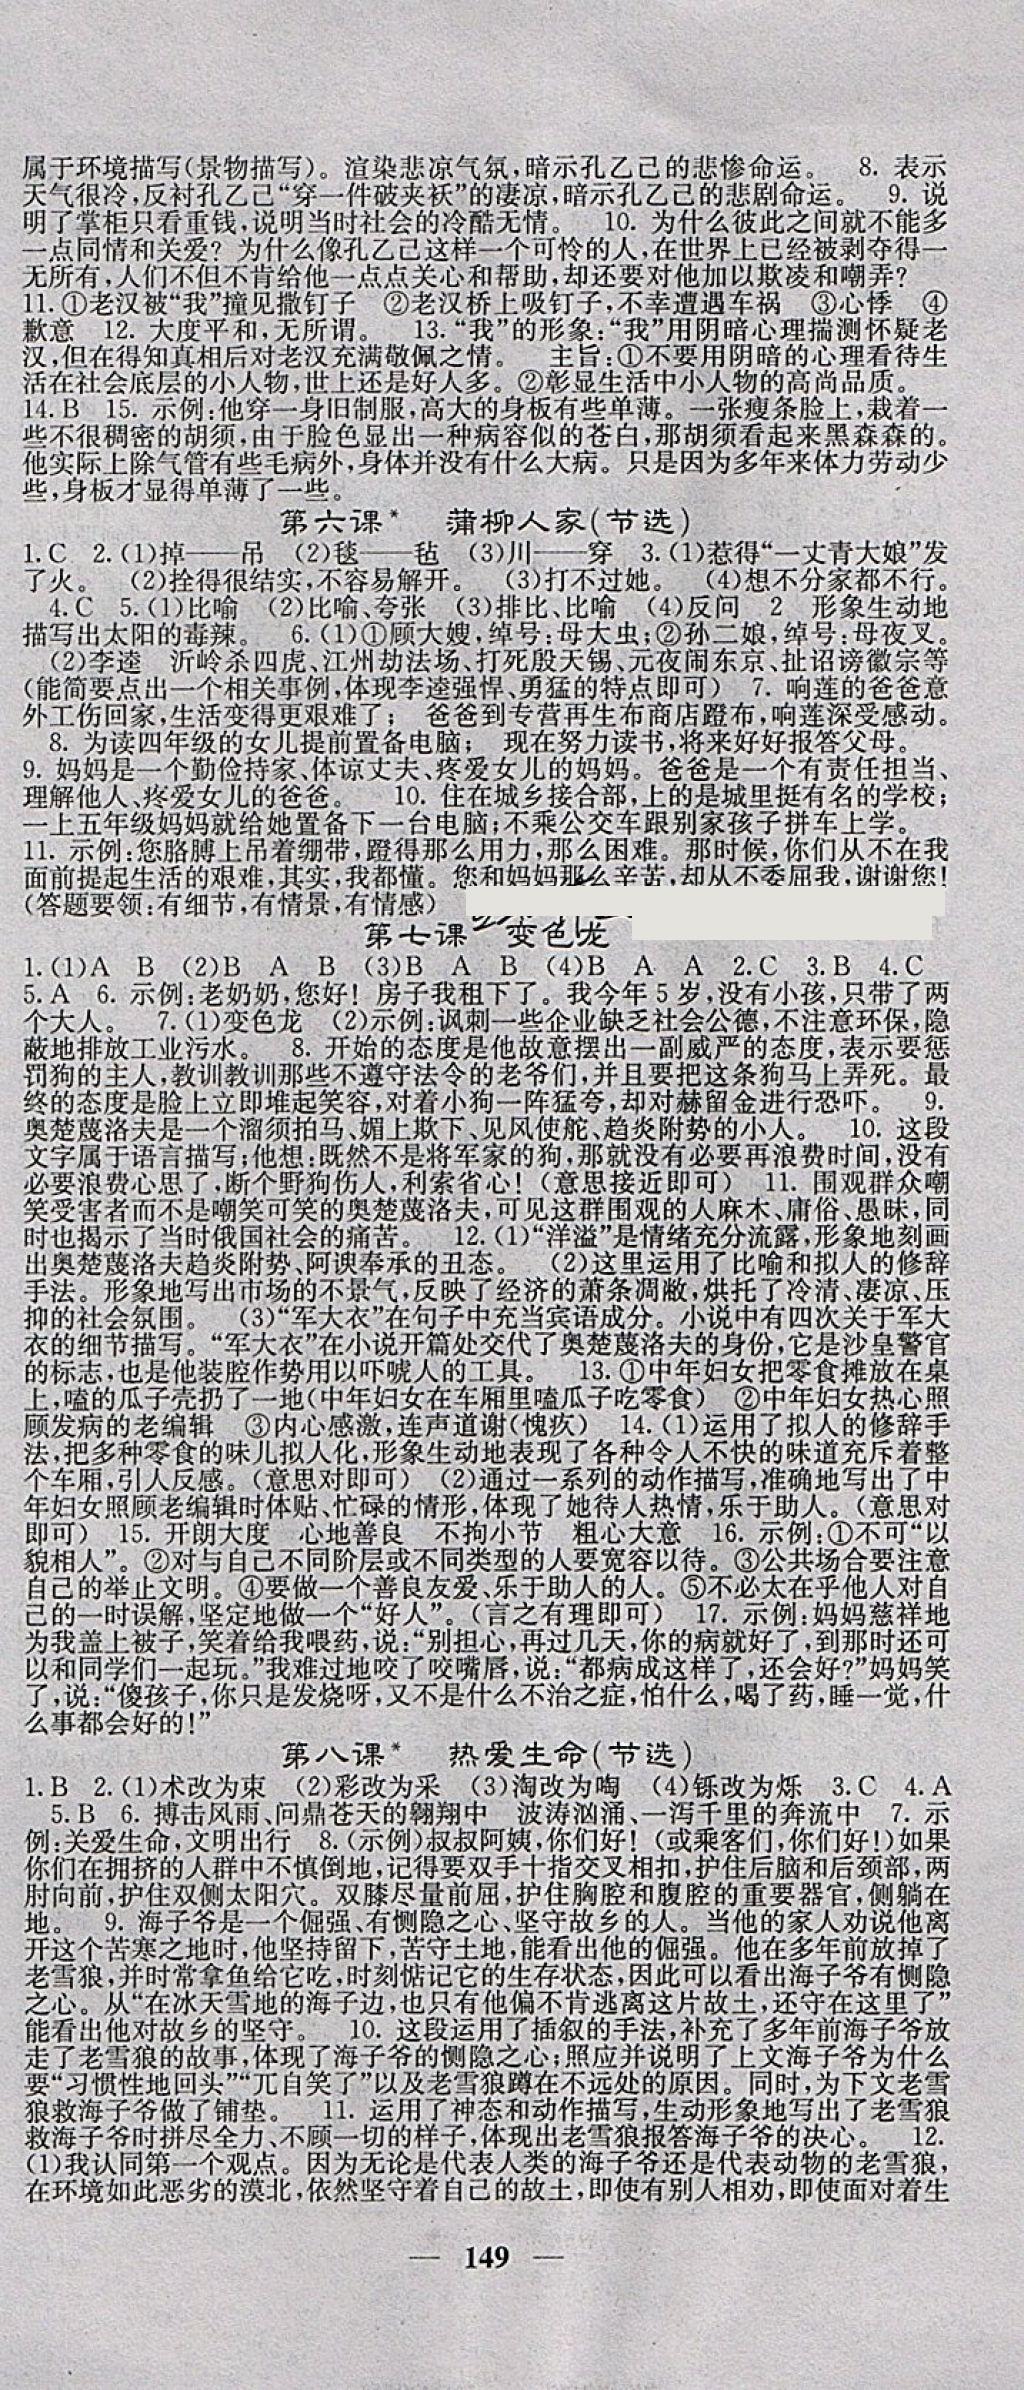 属于环境描写(景物描写)。渲染悲凉气氛,暗示孔乙己的悲惨命运。 8. 表示
天气很冷,反衬孔乙己“穿一件破夹袄”的凄凉,暗示孔乙己的悲剧命运。 9. 说
明了掌柜只看重钱,说明当时社会的冷酷无情。 10. 为什么彼此之间就不能多
一点同情和关爱? 为什么像孔乙己这样一个可怜的人,在世界上已经被剥夺得一
无所有,人们不但不肯给他一点点关心和帮助,却还要对他加以欺凌和嘲弄?
11. ①老汉被“我”撞见撒钉子 ②老汉桥上吸钉子,不幸遭遇车祸 ③心悸 ④
歉意 12. 大度平和,无所谓。 13. “我”的形象:“我”用阴暗心理揣测怀疑老
汉,但在得知真相后对老汉充满敬佩之情。 主旨:①不要用阴暗的心理看待生
活在社会底层的小人物,世上还是好人多。②彰显生活中小人物的高尚品质。
14. B 15. 示例:他穿一身旧制服,高大的身板有些单薄。一张瘦条脸上,栽着一
些不很稠密的胡须,由于脸色显出一种病容似的苍白,那胡须看起来黑森森的。
他实际上除气管有些毛病外,身体并没有什么大病。只是因为多年来体力劳动少
些,身板才显得单薄了一些。
第六课* 蒲柳人家(节选)
1. C 2. (1)掉——吊 (2)毯——毡 (3)川——穿 3. (1)惹得“一丈青大娘”发
了火。 (2)拴得很结实,不容易解开。 (3)打不过她。 (4)想不分家都不行。
4. C 5. (1)比喻 (2)比喻、夸张 (3)排比、比喻 (4)反问 2 形象生动地
描写出太阳的毒辣。 6. (1)①顾大嫂,绰号:母大虫;②孙二娘,绰号:母夜叉。
(2)李逵 沂岭杀四虎、江州劫法场、打死殷天锡、元夜闹东京、扯诏谤徽宗等
(能简要点出一个相关事例,体现李逵强悍、勇猛的特点即可) 7. 响莲的爸爸意
外工伤回家,生活变得更艰难了; 爸爸到专营再生布商店蹬布,响莲深受感动。
8. 为读四年级的女儿提前置备电脑; 现在努力读书,将来好好报答父母。
9. 妈妈是一个勤俭持家、体谅丈夫、疼爱女儿的妈妈。爸爸是一个有责任担当、
理解他人、疼爱女儿的爸爸。 10. 住在城乡接合部,上的是城里挺有名的学校;
一上五年级妈妈就给她置备下一台电脑;不乘公交车跟别家孩子拼车上学。
11. 示例:您胳膊上吊着绷带,蹬得那么用力,那么困难。那时候,你们从不在我
面前提起生活的艰难,其实,我都懂。您和妈妈那么辛苦,却从不委屈我,谢谢您!
(答题要领:有细节,有情景,有情感)
第七课 变色龙
1. (1)A B (2)B A B (3)B A B (4)B A A 2. C 3. B 4. C
5. A 6. 示例:老奶奶,您好! 房子我租下了。我今年 5 岁,没有小孩,只带了两
个大人。 7. (1)变色龙 (2)示例:讽刺一些企业缺乏社会公德,不注意环保,隐
蔽地排放工业污水。 8. 开始的态度是他故意摆出一副威严的态度,表示要惩
罚狗的主人,教训教训那些不遵守法令的老爷们,并且要把这条狗马上弄死。最
终的态度是脸上立即堆起笑容,对着小狗一阵猛夸,却对赫留金进行恐吓。 9.
奥楚蔑洛夫是一个溜须拍马、媚上欺下、见风使舵、趋炎附势的小人。 10. 这段
文字属于语言描写;他想:既然不是将军家的狗,那就没有必要再浪费时间,没有
必要浪费心思了,断个野狗伤人,利索省心! (意思接近即可) 11. 围观群众嘲
笑受害者而不是嘲笑可笑的奥楚蔑洛夫,可见这群围观的人麻木、庸俗、愚昧,同
时也揭示了当时俄国社会的痛苦。 12. (1)“洋溢”是情绪充分流露,形象地刻画
出奥楚蔑洛夫趋炎附势、阿谀奉承的丑态。 (2)这里运用了比喻和拟人的修辞
手法。形象地写出市场的不景气,反映了经济的萧条凋敝,烘托了冷清、凄凉、压
抑的社会氛围。 (3)“军大衣”在句子中充当宾语成分。小说中有四次关于军大
衣的细节描写。“军大衣”在小说开篇处交代了奥楚蔑洛夫的身份,它是沙皇警官
的标志,也是他装腔作势用以吓唬人的工具。 13. ①中年妇女把零食摊放在桌
上,嗑的瓜子壳扔了一地(中年妇女在车厢里嗑瓜子吃零食) ②中年妇女热心照
顾发病的老编辑 ③内心感激,连声道谢(愧疚) 14. (1)运用了拟人的修辞手
法,把多种零食的味儿拟人化,形象生动地表现了各种令人不快的味道充斥着整
个车厢,引人反感。(意思对即可) (2)通过一系列的动作描写,准确地写出了中
年妇女照顾老编辑时体贴、忙碌的情形,体现了她待人热情,乐于助人。(意思对
即可) 15. 开朗大度 心地善良 不拘小节 粗心大意 16. 示例:①不可“以
貌相人”。②对与自己不同阶层或不同类型的人要宽容以待。③公共场合要注意
自己的举止文明。④要做一个善良友爱、乐于助人的人。⑤不必太在乎他人对自
己的一时误解,坚定地做一个“好人”。(言之有理即可) 17. 示例:妈妈慈祥地
为我盖上被子,笑着给我喂药,说:“别担心,再过几天,你的病就好了,到那时还可
以和同学们一起玩。”我难过地咬了咬嘴唇,说:“都病成这样了,还会好?”妈妈笑
了,说:“傻孩子,你只是发烧呀,又不是什么不治之症,怕什么,喝了药,睡一觉,什
么事都会好的!”
第八课* 热爱生命(节选)
1. B 2. (1)术改为束 (2)彩改为采 (3)淘改为啕 (4)铄改为烁 3. C 4. A
5. B 6. 搏击风雨、问鼎苍天的翱翔中 波涛汹涌、一泻千里的奔流中 7. 示
例:关爱生命,文明出行 8. (示例)叔叔阿姨,你们好! (或乘客们,你们好!)如果
你们在拥挤的人群中不慎倒地,记得要双手十指交叉相扣,护住后脑和后颈部,两
肘向前,护住双侧太阳穴。双膝尽量前屈,护住胸腔和腹腔的重要器官,侧躺在
地。 9. 海子爷是一个倔强、有恻隐之心、坚守故乡的人。当他的家人劝说他离
开这个苦寒之地时,他坚持留下,苦守土地,能看出他的倔强。他在多年前放掉了
老雪狼,并时常拿鱼给它吃,时刻惦记它的生存状态,因此可以看出海子爷有恻隐
之心。从“在冰天雪地的海子边,也只有他偏不肯逃离这片故土,还守在这里了”
能看出他对故乡的坚守。 10. 这段运用了插叙的手法,补充了多年前海子爷放
走了老雪狼的故事,体现了海子爷的恻隐之心;照应并说明了上文海子爷为什么
要“习惯性地回头”“兀自笑了”以及老雪狼蹲在不远处的原因。同时,为下文老雪
狼救海子爷做了铺垫。 11. 运用了神态和动作描写,生动形象地写出了老雪狼
救海子爷时拼尽全力、不顾一切的样子,体现出老雪狼报答海子爷的决心。 12.
(1)我认同第一个观点。因为无论是代表人类的海子爷还是代表动物的老雪狼,
在环境如此恶劣的漠北,依然坚守着自己的故土,即使有别人相劝,即使面对着生
— 149 —